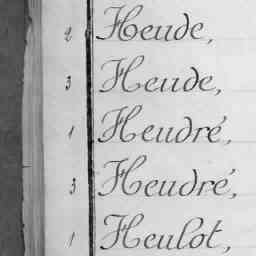 2 Heude,
3 Heude,
1 Heudré,
3 Heudré,
1 Heulot,